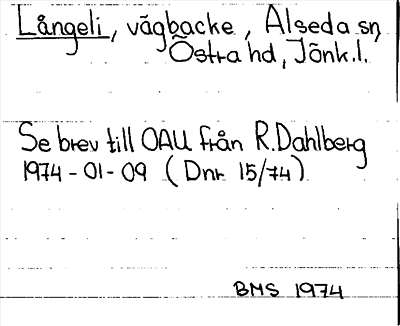 Långeli, vägbacke, Alseda sn,
Östra hd, Jönk.l.
Se brev till OAU från R.Dahlberg
1974-01-09 (Dnr 15/74)
BMS 1974